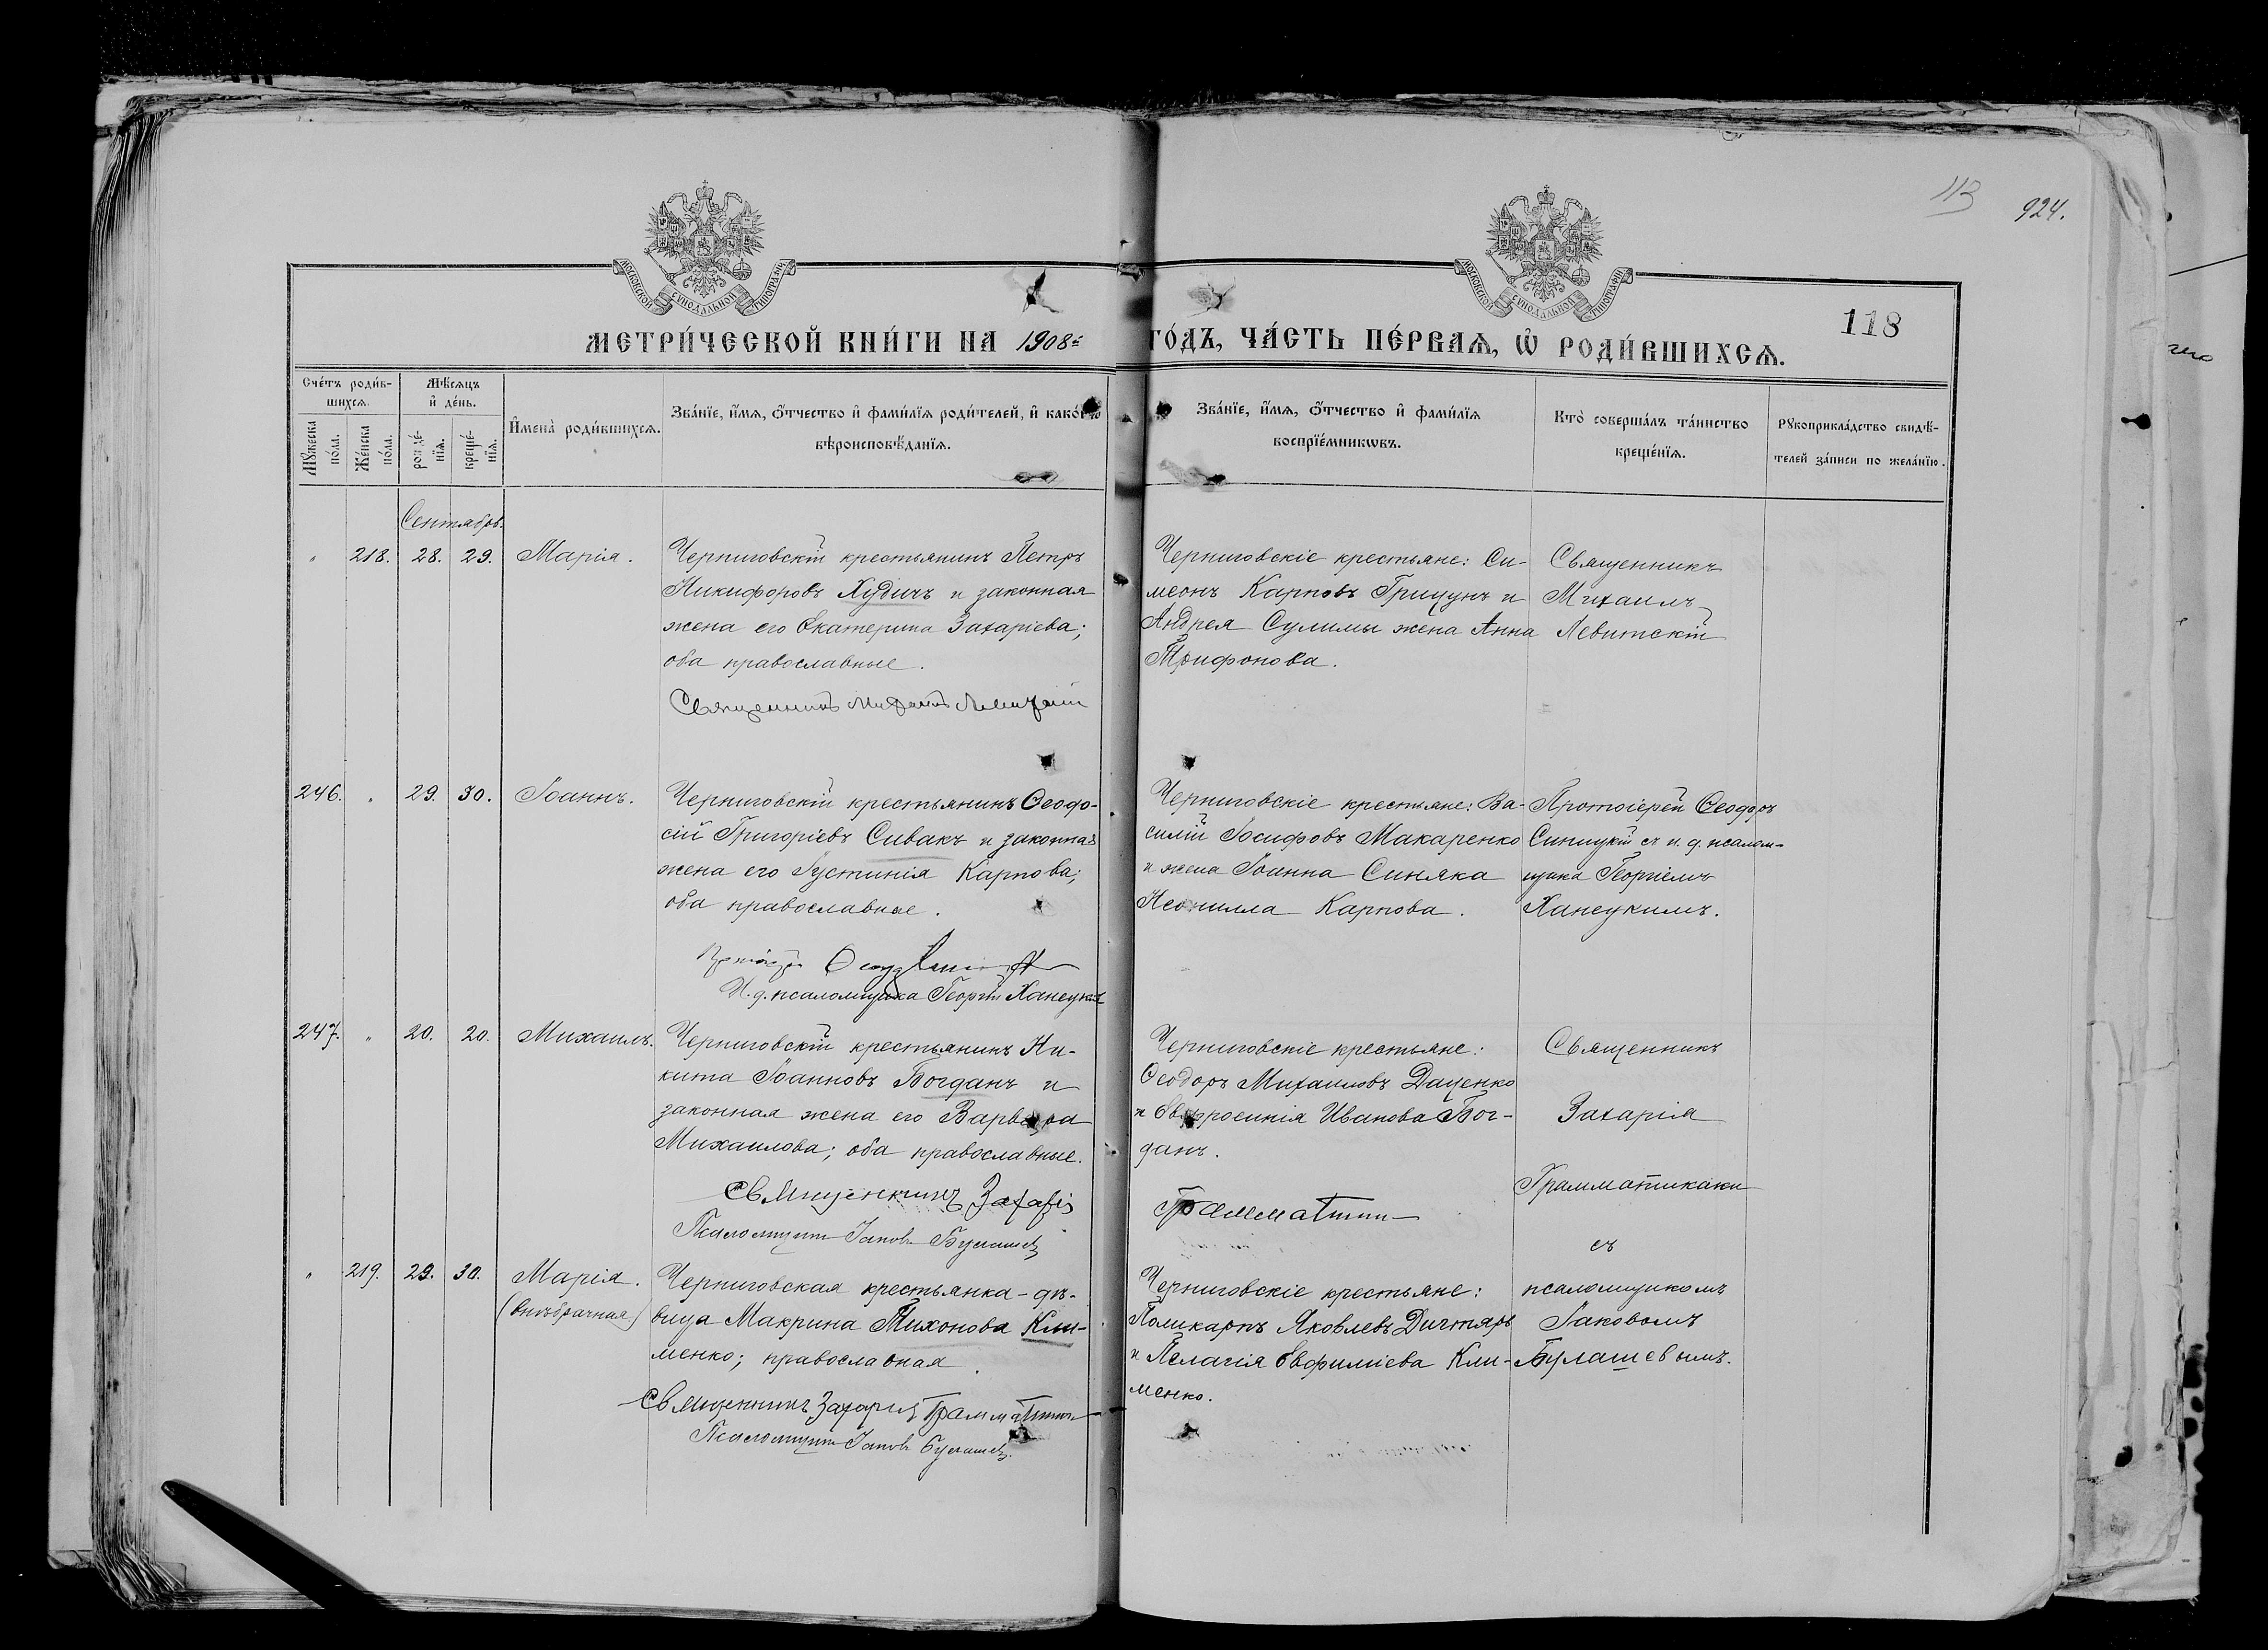 113
924.
МОСКОВСКОЙ СѴНОДАЛЬНОЙ ТИПОГРАФІИ
МОСКОВСКОЙ СѴНОДАЛЬНОЙ ТИПОГРАФІИ
118
МЕТРИ́ЧЕСКОЙ КНИ́ГИ НА 1908й ГО́ДЪ, ЧА́СТЬ ПЕ́РВАѦ, Ѡ҆ РОДИ́ВШИХСѦ.
Сче́тъ роди́в-
шихсѧ.
Мꙋ́жеска по́ла.
Же́нска по́ла.
Мѣ́сѧцъ
и҆ де́нь.
рожде́-
нїѧ.
креще́-
нїѧ.
И҆мена̀ роди́вшихсѧ.
Зва́нїе, и҆́мѧ, ѻ҆́тчество и҆ фами́лїѧ роди́телей, и҆ како́гѡ
вѣроисповѣ́данїѧ.
Зва́нїе, и҆́мѧ, ѻ҆́тчество и҆ фами́лїѧ
воспрїе́мникѡвъ.
Кто̀ соверша́лъ та́инство
креще́нїѧ.
Рꙋкоприкла́дство свидѣ́-
телей за́писи по жела́нїю.
Сентябрь.
" 218. 28. 29. Марія.
Черниговскій крестьянинъ Петръ
Никифоровъ Худичъ и законная
жена его Екатерина Захаріева;
оба православные.
Священникъ Михаилъ Левитскій
Черниговскіе крестьяне: Си-
меонъ Карповъ Грицунъ и
Андрея Сулимы жена Анна
Трифонова.
Священникъ
Михаилъ
Левитскій
246. " 29. 30. Іоаннъ.
Черниговскій крестьянинъ Ѳеодо-
сій Григоріевъ Сивакъ и законная
жена его Іустинія Карпова;
оба православные.
И. д. псаломщика Георгій Ханецкій
Черниговскіе крестьяне: Ва-
силій Іосифовъ Макаренко
и жена Іоанна Синяка
Неонилла Карпова.
Протоіерей Ѳеодоръ
Синицкій съ и. д. псалом-
щика Георгіемъ
Ханецкимъ.
247. " 20. 20. Михаилъ.
Черниговскій крестьянинъ Ни-
кита Іоанновъ Богданъ и
законная жена его Варвара
Михаилова; оба православные.
Священникъ Захарія
Псаломщикъ Іаковъ Булашевъ
Черниговскіе крестьяне:
Ѳеодоръ Михаиловъ Даценко
и Евфросинія Иванова Бог-
данъ.
Священникъ
Захарія
Грамматикаки
съ
псаломщикомъ
Іаковомъ
Булашевымъ.
" 219. 29. 30. Марія.
(внѣбрачная)
Черниговская крестьянка-дѣ-
вица Макрина Тихонова Кли-
менко; православная.
Священникъ Захарія
Псаломщикъ Іаковъ Булашевъ.
Черниговскіе крестьяне:
Поликарпъ Яковлевъ Дигтярь
и Пелагія Евфиміева Кли-
менко.